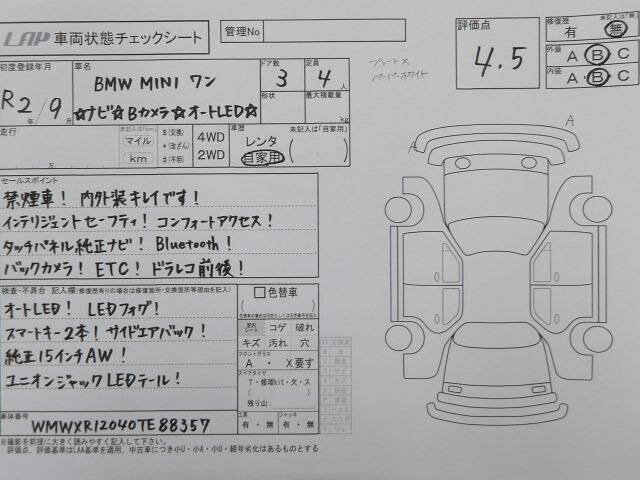 LAP 車両状態チェックシート
管理No
評価点
4.5
修復歴 未記入は「無」
有 無
外装 A・B・C
内装 A・B・C
初度登録年月
R2/9
年 月
車名
BMW MINI ワン
☆ナビ☆Bカメラ☆オートLED☆
ドア数
3
定員
4人
形状
最大積載量
kg
プレート×
ペーパーホワイト
走行
万
未記入は「km」
マイル
km
$(交換)
*(改ざん)
#(不明)
4WD
2WD
車歴 未記入は「自家用」
レンタ
自家用
A
A
セールスポイント
禁煙車! 内外装キレイです!
インテリジェントセーフティ! コンフォートアクセス!
タッチパネル純正ナビ! Bluetooth!
バックカメラ! ETC! ドラレコ前後!
検査・不具合 記入欄(修復歴有りの場合は修復箇所・交換箇所等理由を記入)
オートLED! LEDフォグ!
スマートキー2本! サイドエアバック!
純正15インチAW!
ユニオンジャックLEDテール!
色替車
室内シート
コゲ 破れ
キズ 汚れ 穴
フロントガラス
A ・ X要す
スペアタイヤ
T・修理kit・欠・ス
残り山:
工具
有・無
ジャッキ
有・無
車体番号
WMWXR12040TE88357
※撮影を前提に大きく読みやすく記入して下さい。
評価点、評価基準はLAA基準を適用、中古車につき小U・小A・小U・経年劣化はあるものとする